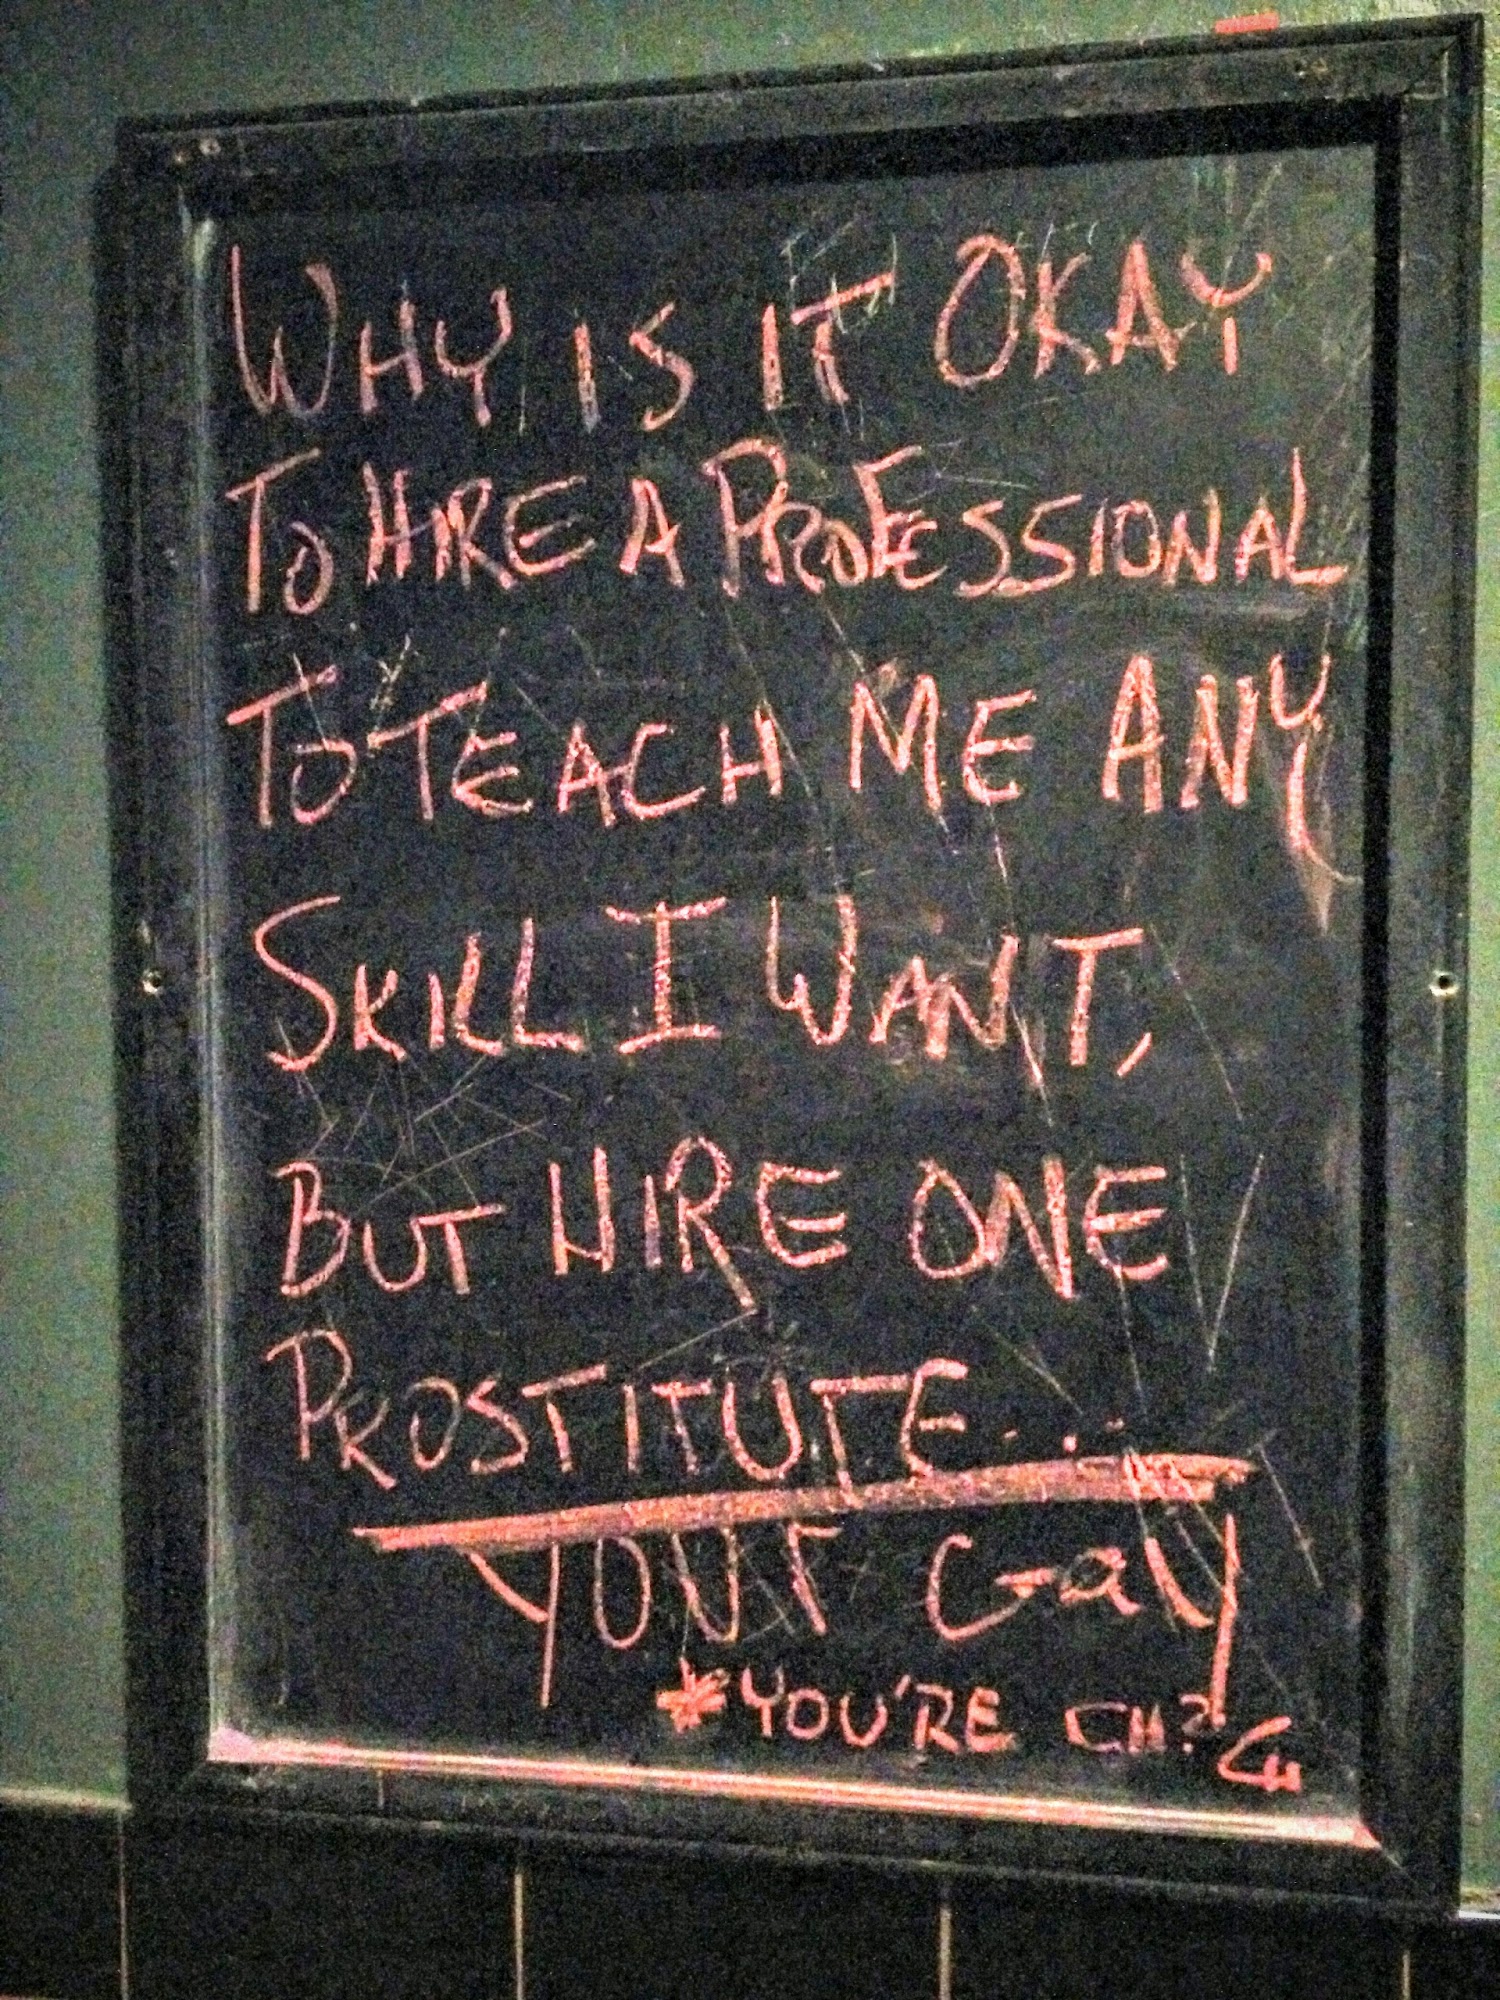 WHY IS IT OKAY
TO HIRE A PROFESSIONAL
TO TEACH ME ANY
SKILL I WANT,
BUT HIRE ONE
PROSTITUTE...
YOUr Gay
*YOU'RE